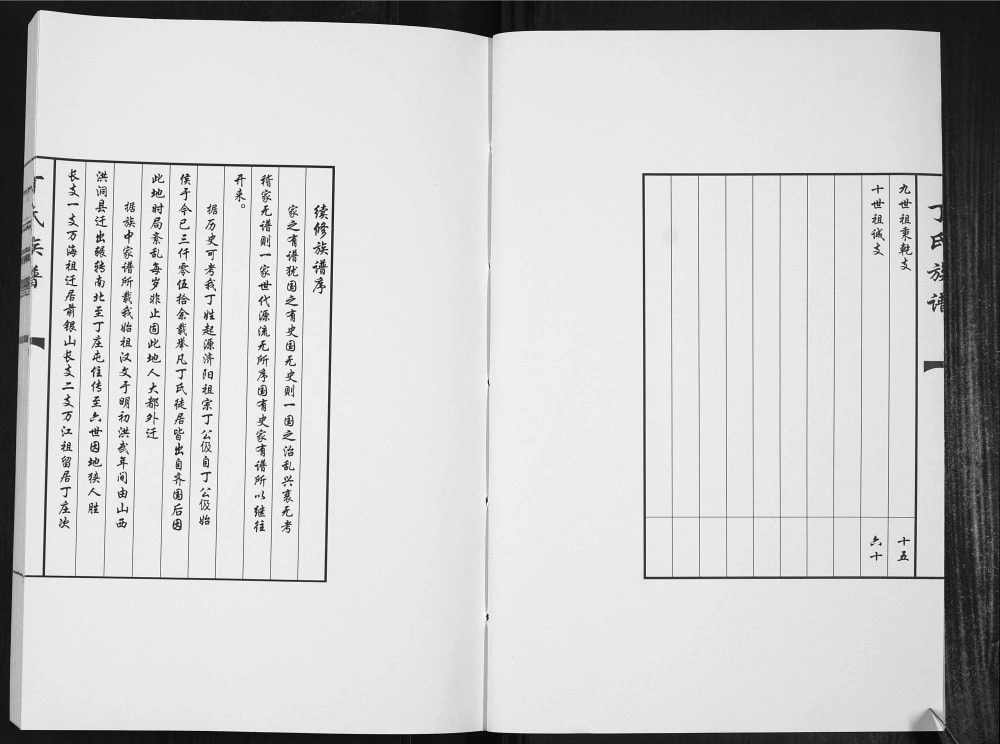 丁氏族谱
九世祖秉乾支 十五
十世祖诚支 六十
续修族谱序
家之有谱犹国之有史国无史则一国之治乱兴衰无考
稽家无谱则一家世代源流无所序国有史家有谱所以继往
开来。
据历史可考我丁姓起源济阳祖宗丁公伋自丁公伋始
侯于今已三仟零伍拾余载举凡丁氏徒居皆出自齐国后因
此地时局紊乱每岁非止固此地人大都外迁
据族中家谱所载我始祖汉文于明初洪武年间由山西
洪洞县迁出辗转南北至丁庄屯住传至六世因地狭人胜
长支一支万海祖迁居前银山长支二支万江祖留居丁庄次
丁氏族谱